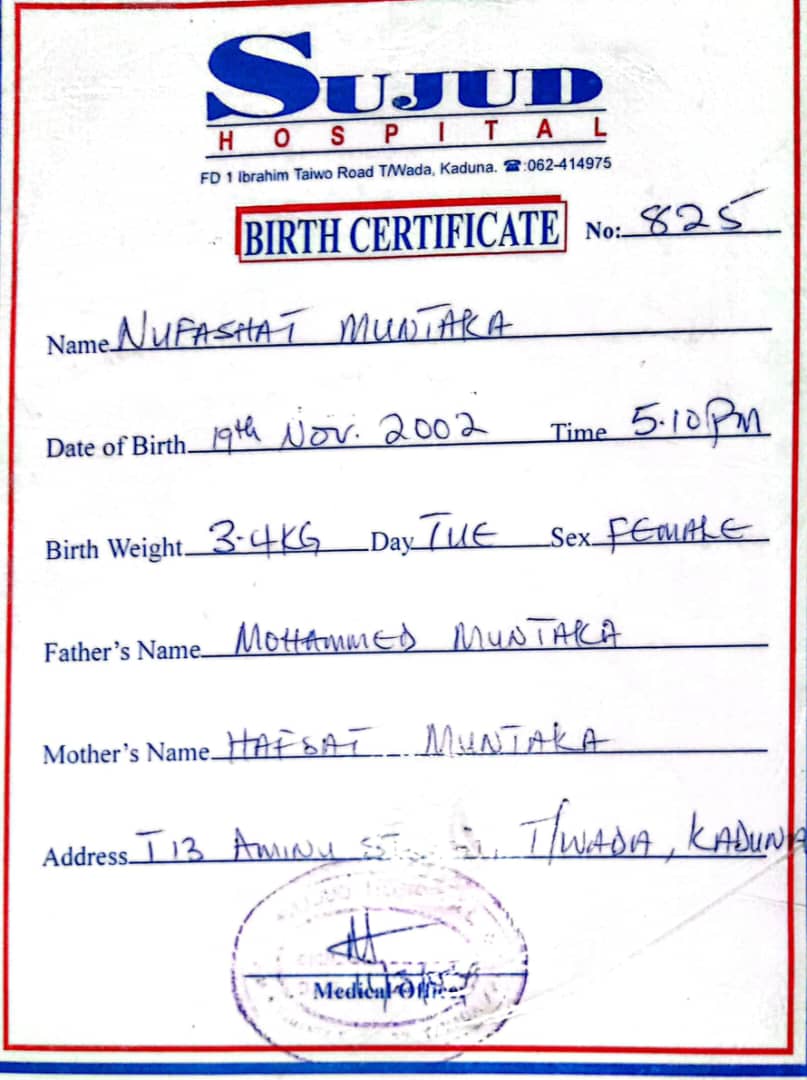 SUJUD
HOSPITAL
FD 1 Ibrahim Taiwo Road T/Wada, Kaduna. ☎:062-414975
BIRTH CERTIFICATE No: 825
Name NUFASHAT MUNTAKA
Date of Birth 19th Nov. 2002 Time 5.10PM
Birth Weight 3.4KG Day TUE Sex FEMALE
Father's Name MOHAMMED MUNTAKA
Mother's Name HAFSAT MUNTAKA
Address T13 AMINU T/WADA, KADUNA
Medical Officer